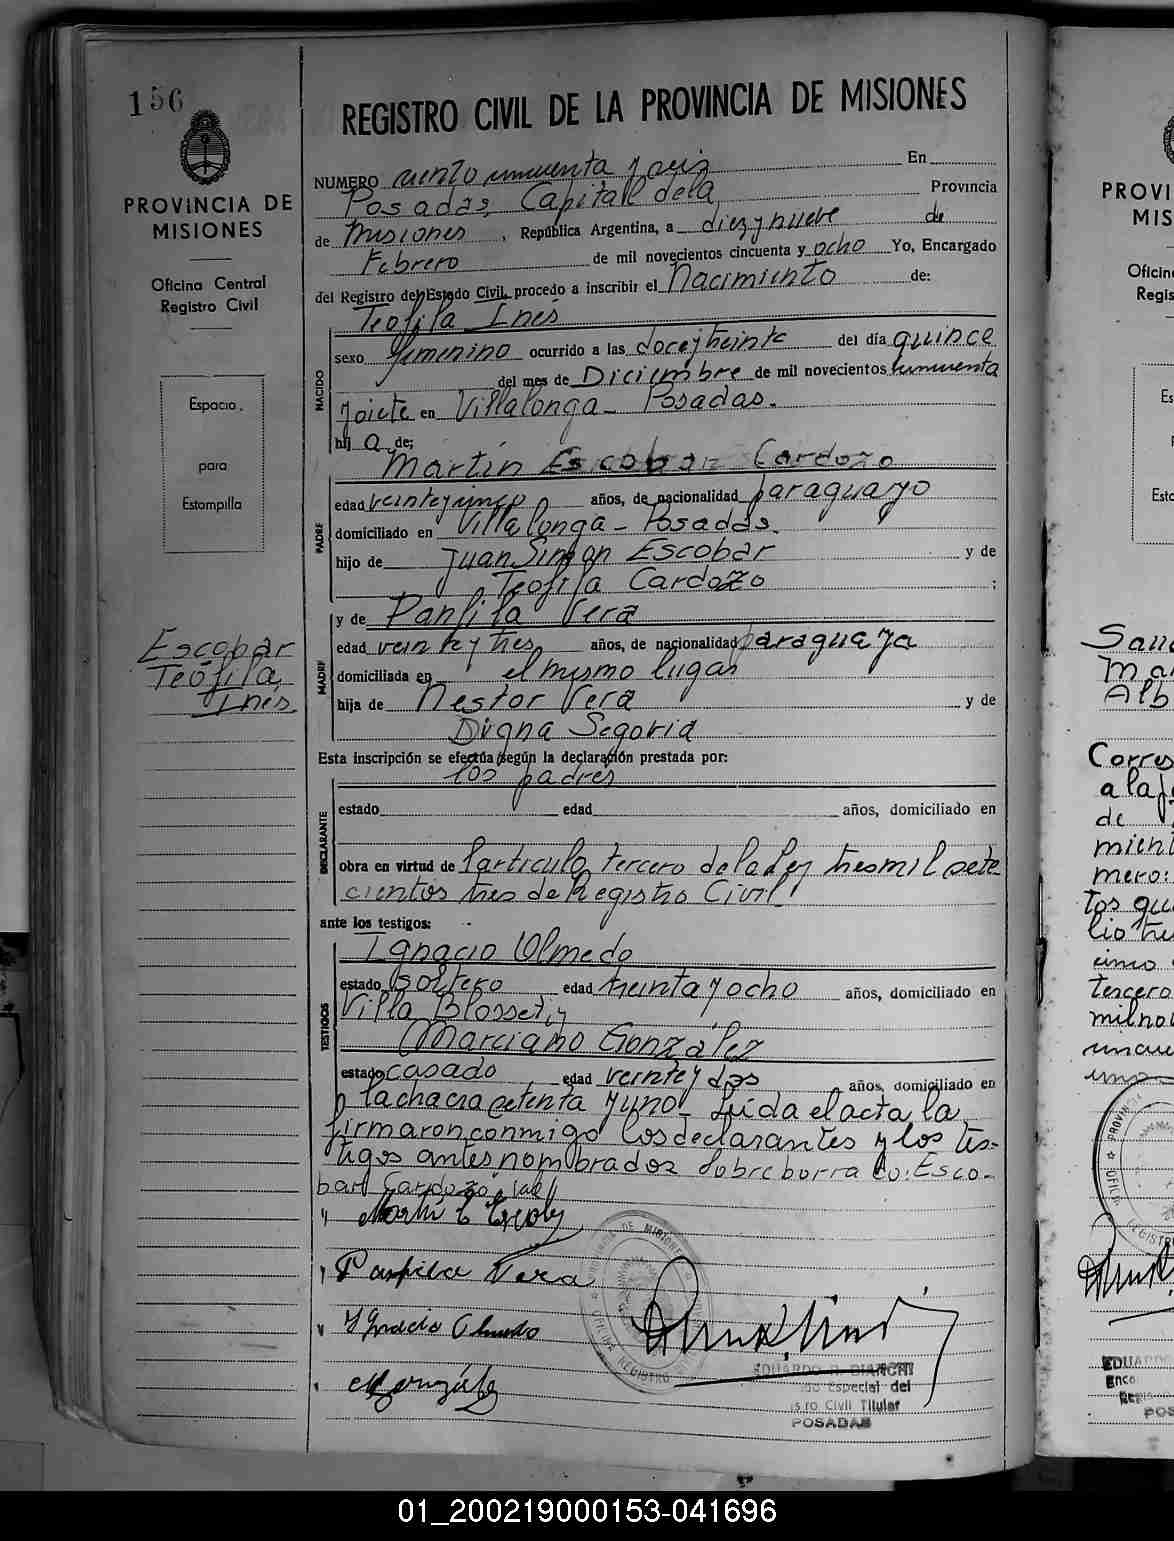 156
PROVINCIA DE
MISIONES
Oficina Central
Registro Civil
Espacio
para
Estampilla
Escobar
Teófila
Inés
REGISTRO CIVIL DE LA PROVINCIA DE MISIONES
NUMERO ciento cincuenta y seis En
Posadas, Capital dela Provincia
de Misiones, República Argentina, a diez y nueve de
Febrero de mil novecientos cincuenta y ocho Yo, Encargado
del Registro del Estado Civil, procedo a inscribir el Nacimiento de:
Teofila Inés
NACIDO
sexo femenino ocurrido a las doce y treinta del día quince
del mes de Diciembre de mil novecientos cincuenta
y siete en Villalonga - Posadas.
hij a de;
Martín Escobar Cardozo
PADRE
edad veinte y cinco años, de nacionalidad paraguayo
domiciliado en Villalonga - Posadas.
hijo de Juan Simón Escobar y de
Teofila Cardozo ;
y de Panfila Vera
MADRE
edad veinte y tres años, de nacionalidad paraguaya
domiciliada en el mismo lugar
hija de Nestor Vera y de
Digna Segovia
Esta inscripción se efectúa según la declaración prestada por:
los padres
DECLARANTE
estado edad años, domiciliado en
obra en virtud de l'articulo tercero dela Ley tresmil sete
cientos tres de Registro Civil
ante los testigos:
Ignacio Olmedo
TESTIGOS
estado soltero edad treinta y ocho años, domiciliado en
Villa Blosset, y
Marciano González
estado casado edad veinte y dos años, domiciliado en
la chacra setenta y uno - Leída el acta la
firmaron conmigo los declarantes y los tes-
tigos antes nombrados Sobre borrado: Esco-
bar Cardozo, vale
Martín C Escobar
Panfila Vera
Ignacio Olmedo
M González
EDUARDO R. BIANCHI
Especial del
Civil Titular
POSADAS
PROVI
MIS
Oficin
Regis
Es
Esta
Mar
Alb
Corres
a la
de
mient
mero:
tos qui
lio tre
cinco
tercero
mil no
EDUARDO
Enca
POS
01_200219000153-041696